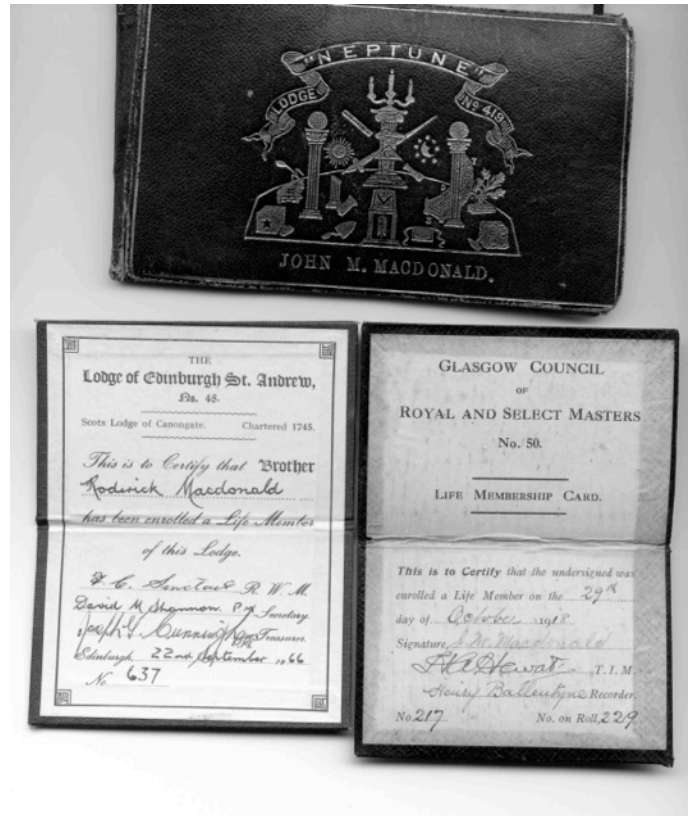 "NEPTUNE"
LODGE No 419
JOHN M. MACDONALD.
THE
Lodge of Edinburgh St. Andrew,
No. 48.
Scots Lodge of Canongate. Chartered 1745.
This is to Certify that Brother
Roderick Macdonald
has been enrolled a Life Member
of this Lodge.
C. Sinclair R. W. M.
David M Shannon. P.M. Secretary.
Cunningham P.M. Treasurer.
Edinburgh, 22nd September 1966
No. 637
GLASGOW COUNCIL
OF
ROYAL AND SELECT MASTERS
No. 50.
LIFE MEMBERSHIP CARD.
This is to Certify that the undersigned was
enrolled a Life Member on the 29th
day of October 1918
Signature, J. M. Macdonald
Hewat T.I.M.
Henry Ballantyne Recorder.
No. 217 No. on Roll, 229